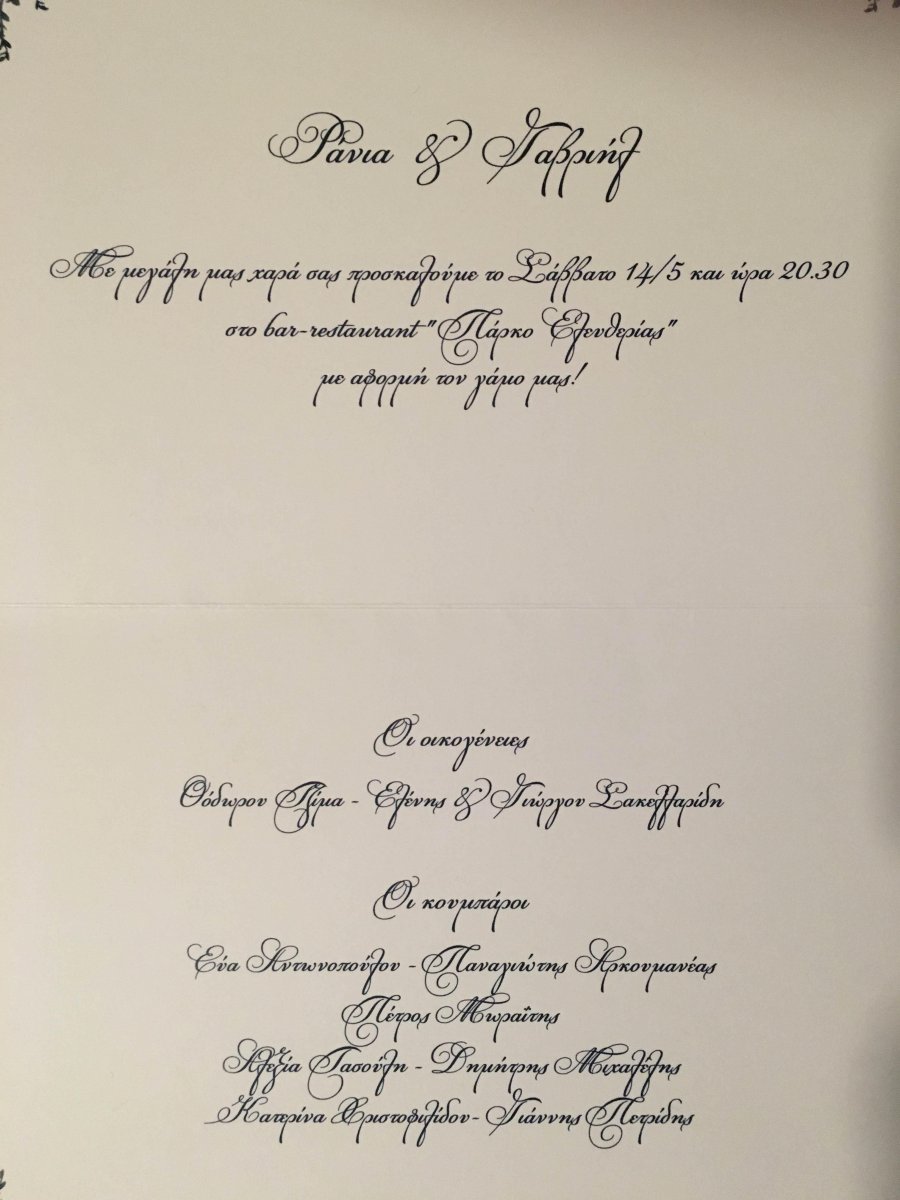 Ράνια & Γαβριήλ
Με μεγάλη μας χαρά σας προσκαλούμε το Σάββατο 14/5 και ώρα 20.30
στο bar-restaurant "Πάρκο Ελευθερίας"
με αφορμή τον γάμο μας!
Οι οικογένειες
Θόδωρου - Ελένης & Γιώργου Σακελλαρίδη
Οι κουμπάροι
Εύα Αντωνοπούλου - Παναγιώτης Αρκουμανέας
Πέτρος Μωραΐτης
Αλεξία Τασούλη - Δημήτρης Μιχαλέλης
Κατερίνα Χριστοφιλίδου- Γιάννης Πετρίδης